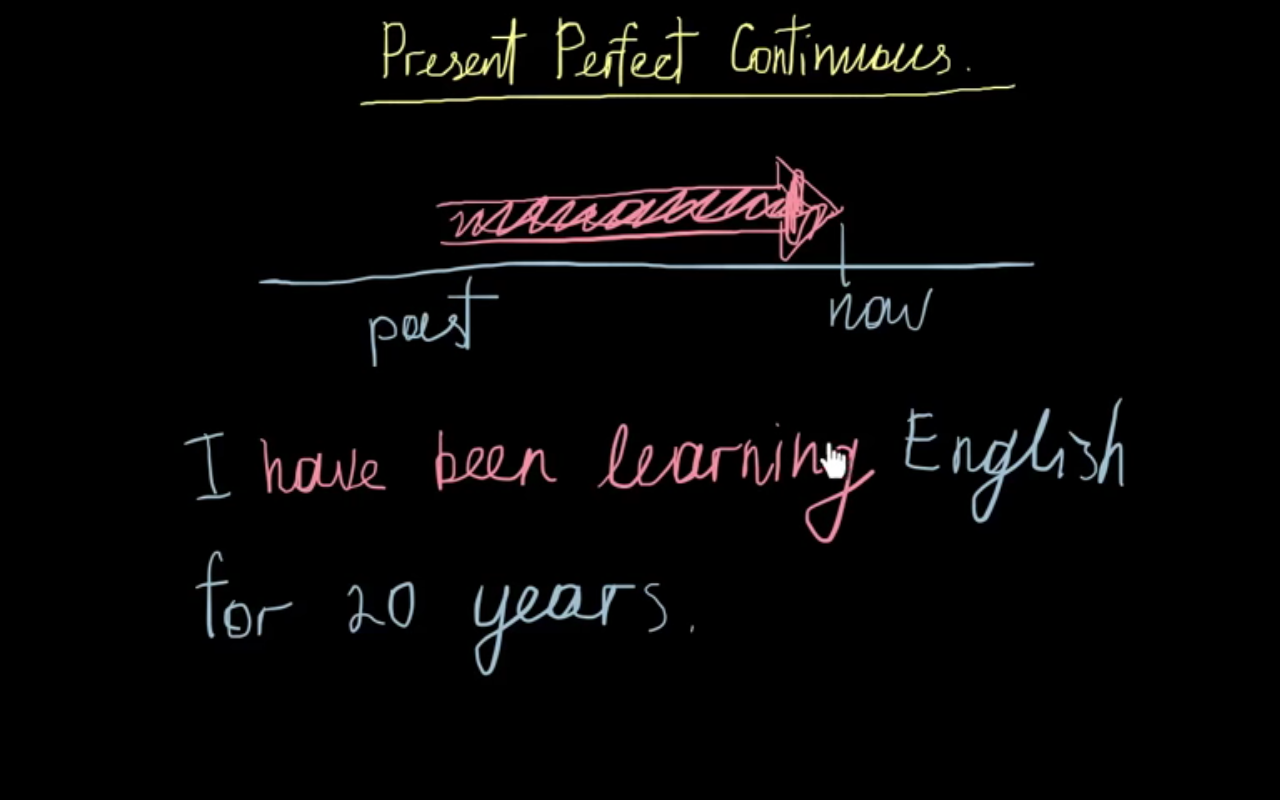 Present Perfect Continuous.
past
now
I have been learning English
for 20 years.